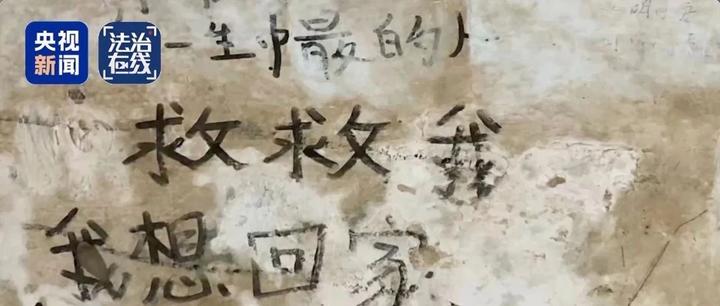 央视新闻
法治在线
一生最的人
救救我
我想回家